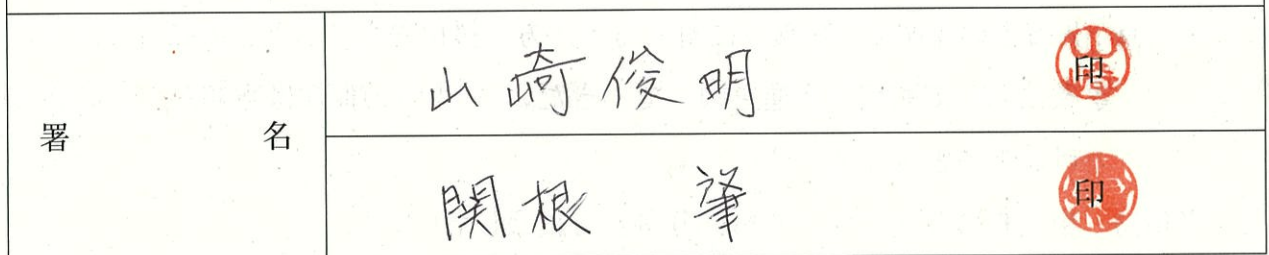 署名
山崎俊明 印
関根 肇 印